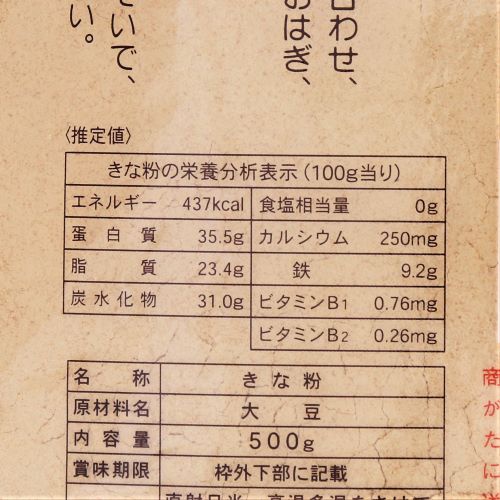 合わせ、
おはぎ、
さいで、
い。
〈推定値〉
きな粉の栄養分析表示(100g当り)
エネルギー 437kcal 食塩相当量 0g
蛋白質 35.5g カルシウム 250mg
脂質 23.4g 鉄 9.2g
炭水化物 31.0g ビタミンB1 0.76mg
ビタミンB2 0.26mg
名称 きな粉
原材料名 大豆
内容量 500g
賞味期限 枠外下部に記載
商
が
た
に